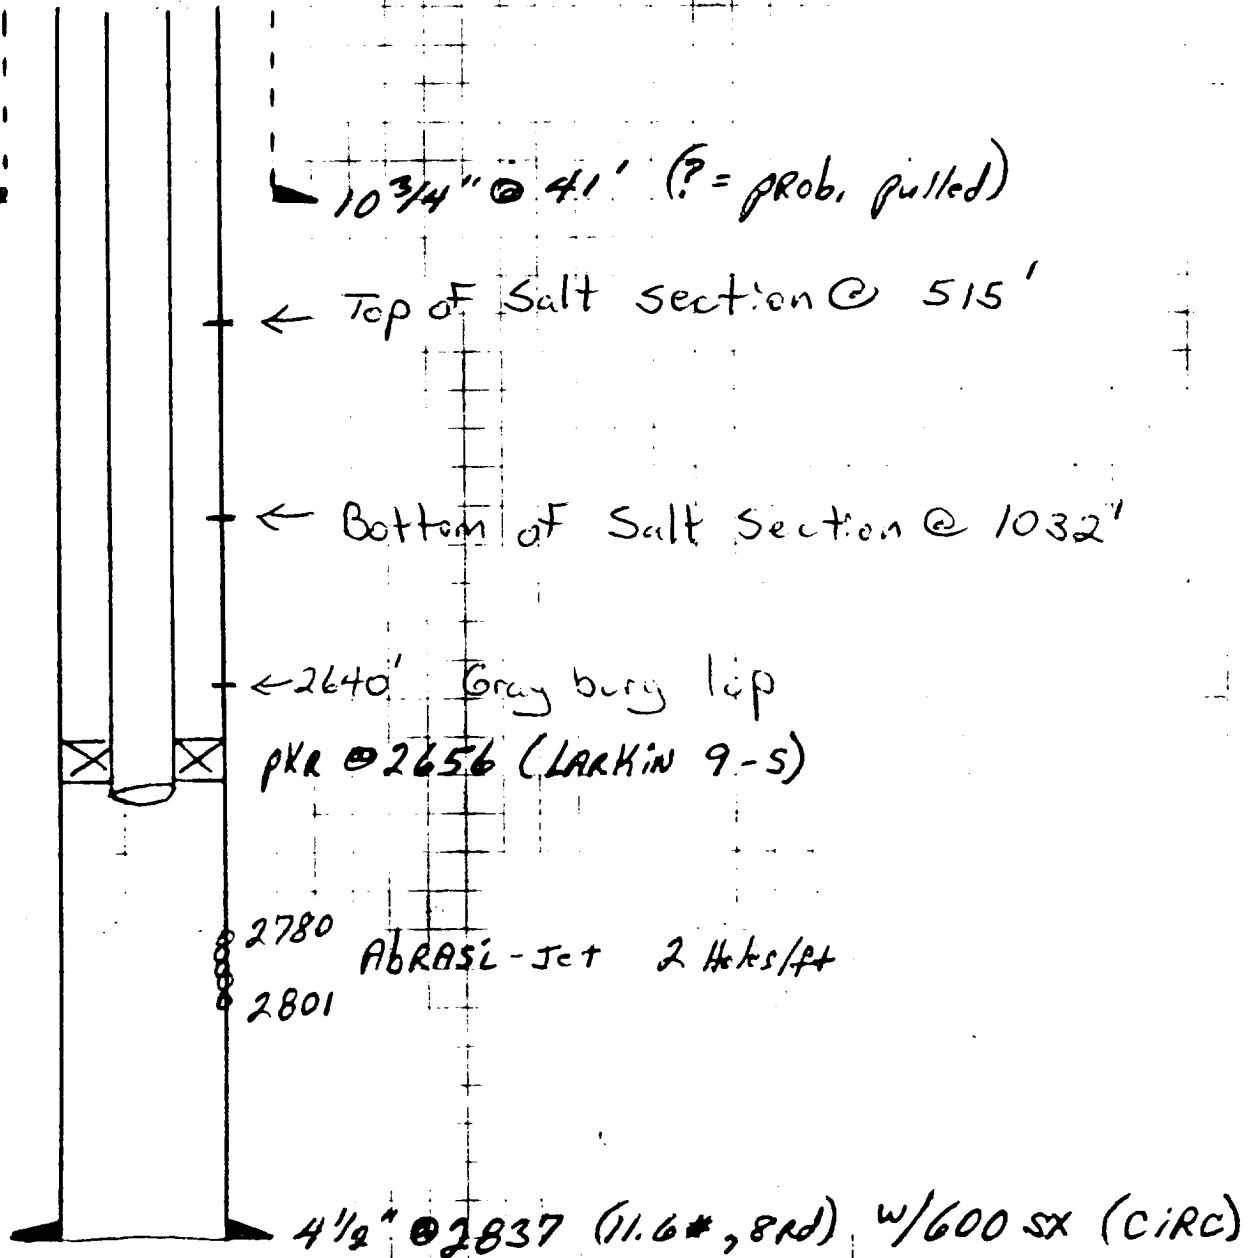 10 3/4" @ 41' (? = prob. pulled)
← Top of Salt section @ 515'
← Bottom of Salt Section @ 1032'
← 2640' Grayburg top
pKR @ 2656 (LARKiN 9-S)
2780
AbRASi-Jet 2 Holes/ft
2801
4 1/2" @ 2837 (11.6#, 8Rd) w/600 SX (CiRC)